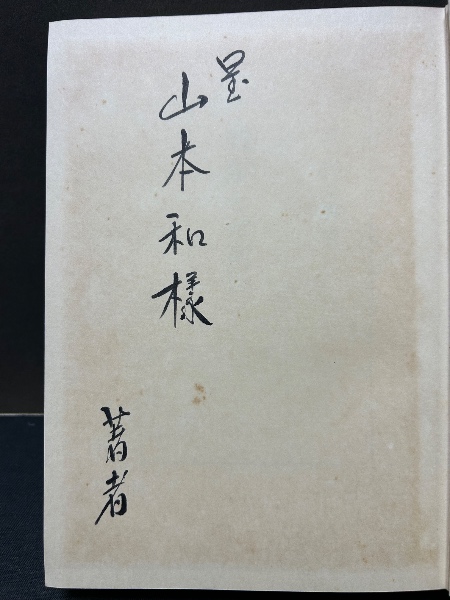 呈
山本和様
著者